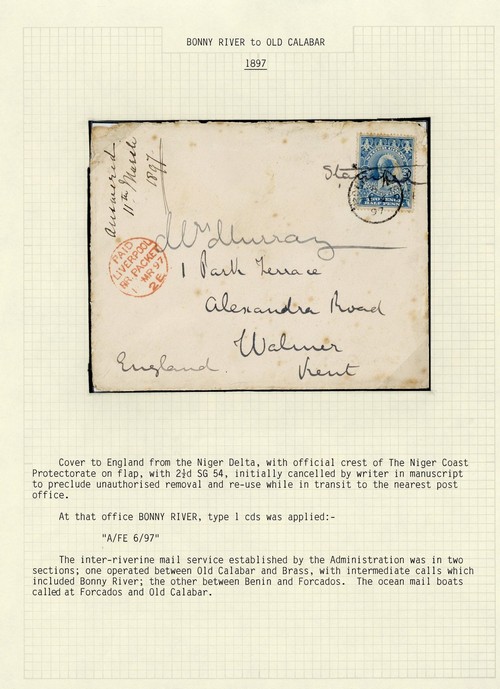 BONNY RIVER to OLD CALABAR
1897
answered
11th March
1897
Mrs Murray
1 Park Terrace
Alexandra Road
Walmer
Kent
England.
PAID
LIVERPOOL
BR. PACKET
1 MR 97
2E
97
HALF PENNY
Cover to England from the Niger Delta, with official crest of The Niger Coast
Protectorate on flap, with 2½d SG 54, initially cancelled by writer in manuscript
to preclude unauthorised removal and re-use while in transit to the nearest post
office.
At that office BONNY RIVER, type 1 cds was applied:-
"A/FE 6/97"
The inter-riverine mail service established by the Administration was in two
sections; one operated between Old Calabar and Brass, with intermediate calls which
included Bonny River; the other between Benin and Forcados. The ocean mail boats
called at Forcados and Old Calabar.